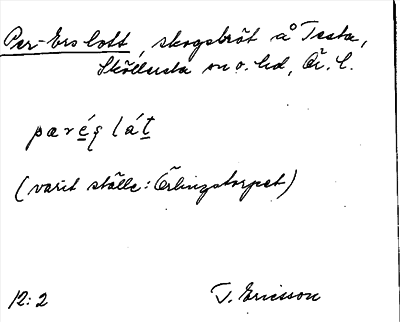 Per-Ers lott, skogslåt å Testa,
Sköllersta sn o. hd, Ör. l.
pærę́ş låt
(varit ställe: Erlingstorpet)
12:2 T. Ericsson